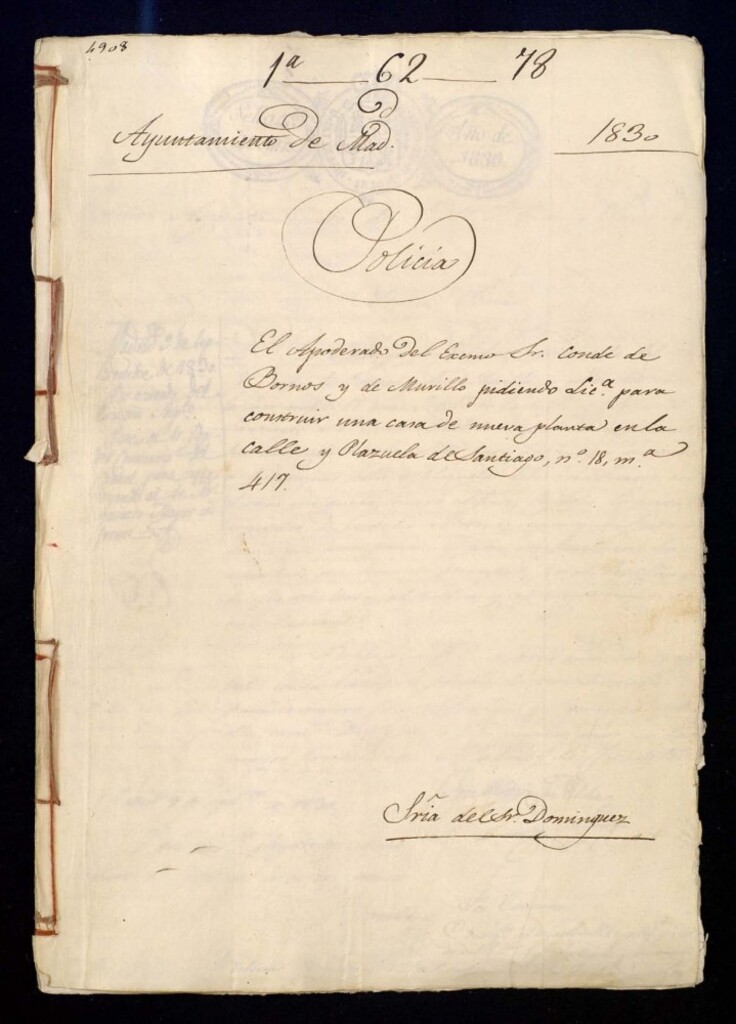 4908
1ª 62 78
Ayuntamiento de Mad.d
1830
Policía
El Apoderado del Excmo Sr. Conde de
Bornos y de Murillo pidiendo Lic.ª para
construir una casa de nueva planta en la
calle y Plazuela de Santiago, nº. 18, m.ª
417.
Sría del Sr. Dominguez